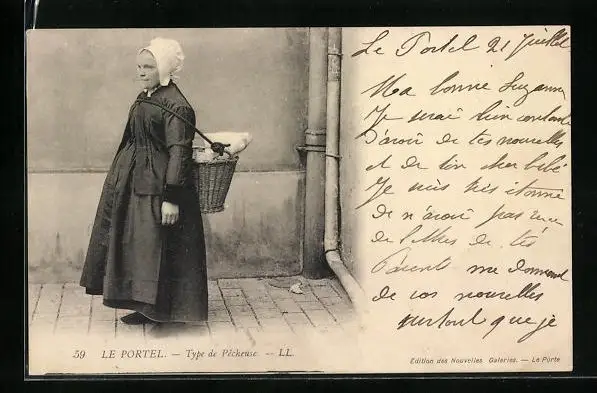 Le Portel 21 juillet
Ma bonne Suzanne
Je serai bien contente
d'avoir de tes nouvelles
et de ton cher bébé
Je suis très étonnée
de n'avoir pas reçu
de lettres de tes
parents me donnant
de vos nouvelles
surtout que je
59 LE PORTEL. — Type de Pêcheuse. — LL.
Edition des Nouvelles Galeries. — Le Porte